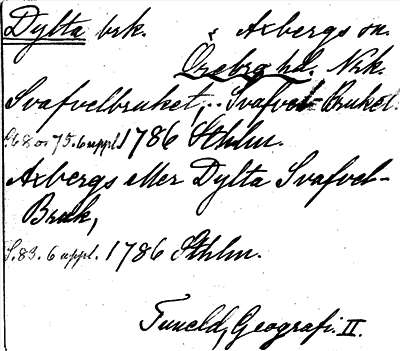 Dylta brk. Axbergs sn.
Örebro hd. Nrk.
Svafvelbruket, Svafvel-Bruket.
S. 68 o 75. 6 uppl. 1786 Sthlm.
Axbergs eller Dylta Svafvel-
Bruk,
S. 83. 6 uppl. 1786 Sthlm.
Tuneld, Geografi. II.